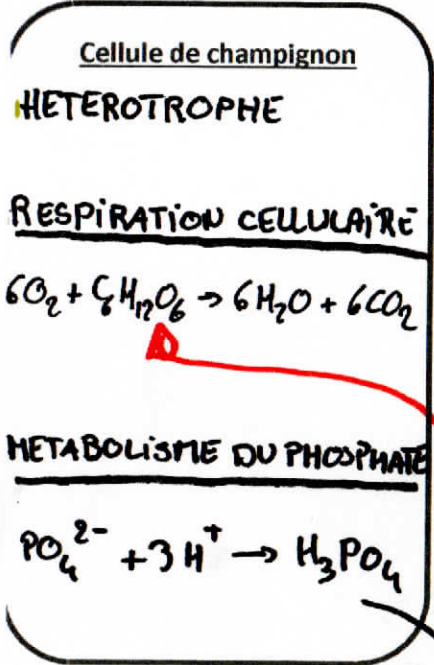 Cellule de champignon
HETEROTROPHE
RESPIRATION CELLULAIRE
6O₂ + C₆H₁₂O₆ → 6H₂O + 6CO₂
METABOLISME DU PHOSPHATE
PO₄²⁻ + 3H⁺ → H₃PO₄